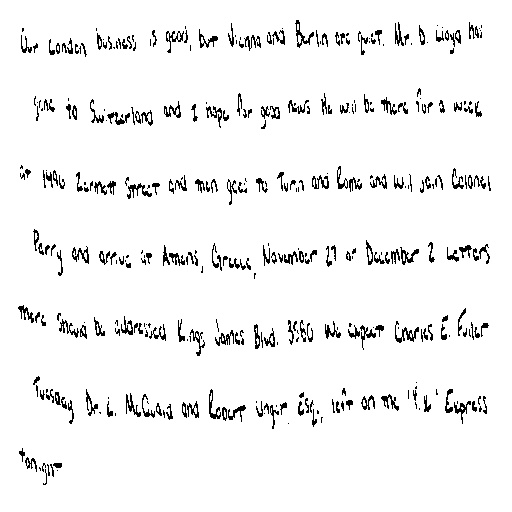 Our London business is good, but Vienna and Berlin are quiet. Mr. D. Lloyd has
gone to Switzerland and I hope for good news He will be there for a week
at 1496 Zermott Street and then goes to Turin and Rome and will join Colonel
Parry and arrive at Athens, Greece, November 27 or December 2 Letters
there should be addressed Kings James Blvd. 3580 We expect Charles E. Fuller
Tuesday Dr. L. McQuaid and Robert Unger. Esq., left on the 'Y.X' Express
tonight